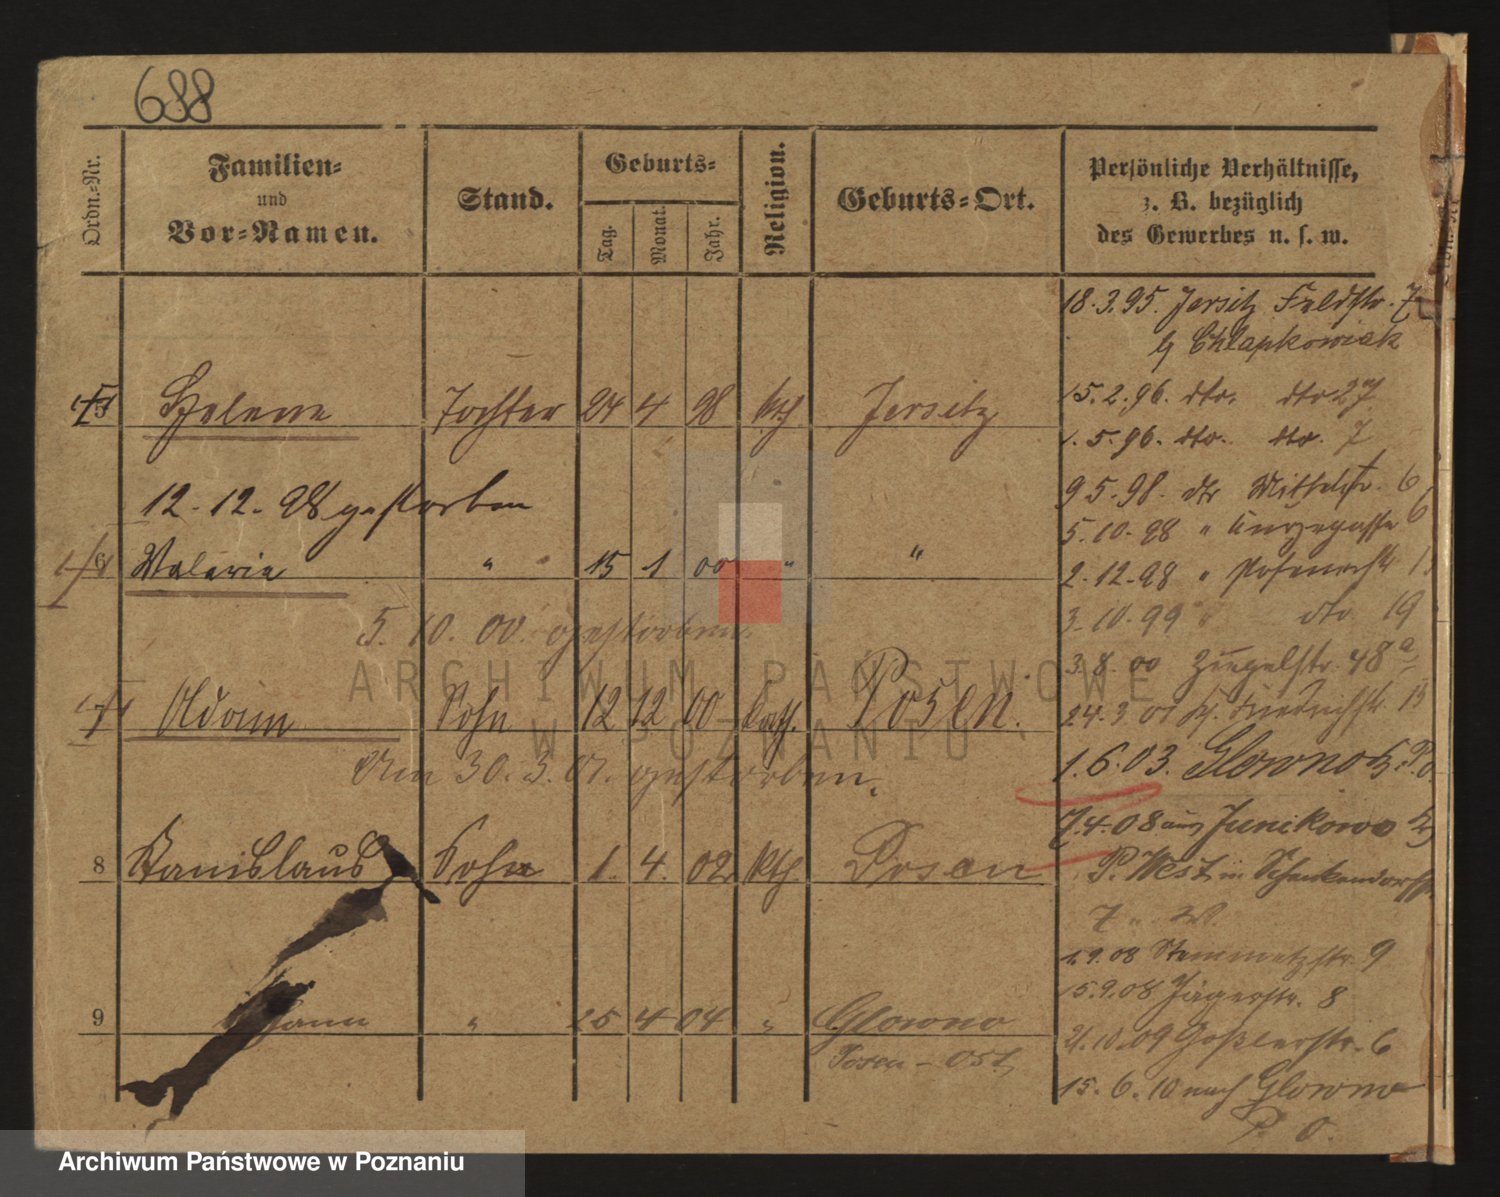 688
Ordn.-Nr.
Familien-
und
Vor-Namen.
Stand.
Geburts-
Tag.
Monat.
Jahr.
Religion.
Geburts-Ort.
Persönliche Verhältnisse,
z. B. bezüglich
des Gewerbes u. s. w.
18.3.95. Jersitz Feldstr. 7
b/ Chlapkowiak
5 Helene Tochter 24 4 98 kth Jersitz
15.2.96. dto. dto 27
1.5.96. dto. dto. 7
12.12.98 gestorben
9.5.98. dto Mittelstr. 6
5.10.98 " Kurzegasse 6
6 Valerie " 15 1 00 " "
2.12.98 " Posenerstr
5.10.00. gestorben.
3.10.99 " dto 19
3.8.00 Ziegelstr. 48a
7 Adam Sohn 12 12 00 kath. Posen.
24.3.01 Friedrichstr.
Am 30.3.01. gestorben.
1.6.03. Glowno b. P. O.
7.4.08 aus Junikowo b/
8 Stanislaus Sohn 1. 4. 02 kth. Posen
P. West in Schenkendorfstr
7 " W.
1.9.08 Stemmetzstr. 9
15.9.08 Jägerstr. 8
9 Johann " 25 4 04 " Glowno
Posen - Ost
21.10.09 Goßlerstr. 6
15.6.10 nach Glowno
P. O.
ARCHIWUM PAŃSTWOWE
W POZNANIU
Archiwum Państwowe w Poznaniu